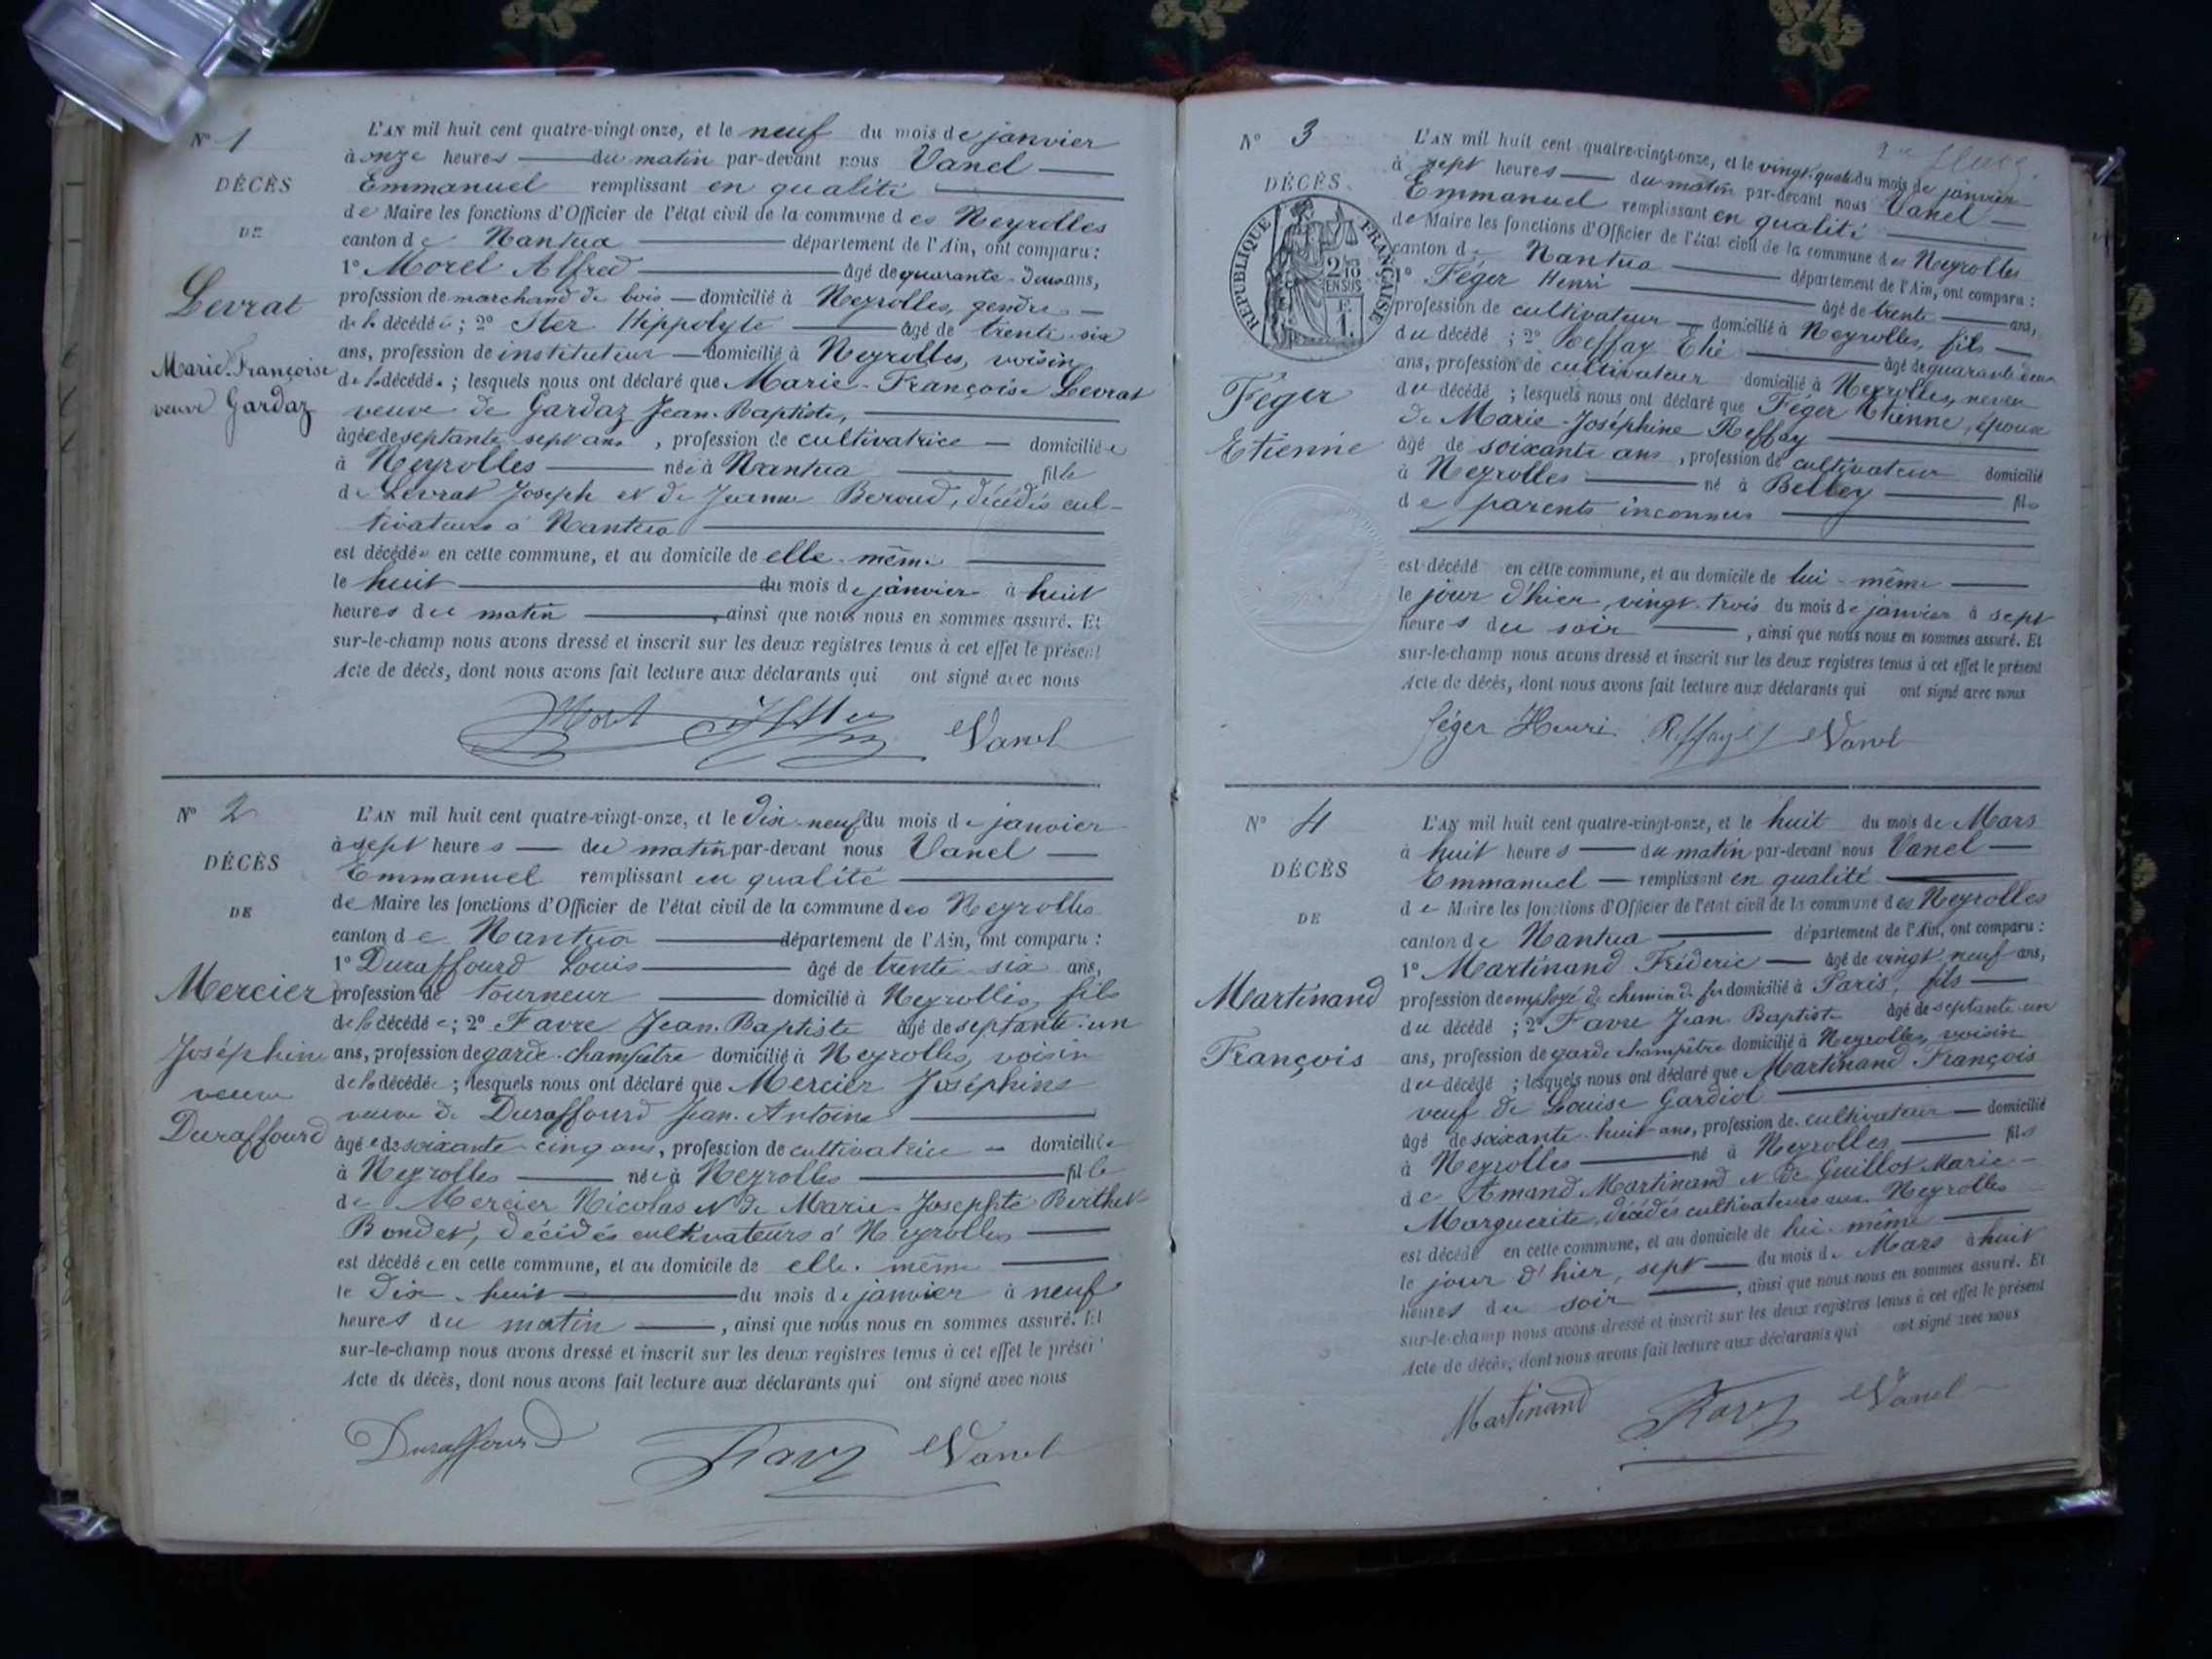 N° 1
DÉCÈS
DE
Levrat
Marie-Françoise
veuve Gardaz
L'AN mil huit cent quatre-vingt-onze, et le neuf du mois de janvier
à onze heures du matin par-devant nous Vanel
Emmanuel remplissant en qualité
de Maire les fonctions d'Officier de l'état civil de la commune des Neyrolles
canton de Nantua département de l'Ain, ont comparu :
1° Morel Alfred âgé de quarante-deux ans,
profession de marchand de bois domicilié à Neyrolles, gendre
de la décédée ; 2° Ster Hippolyte âgé de trente-six
ans, profession de instituteur domicilié à Neyrolles, voisin
de la décédée ; lesquels nous ont déclaré que Marie-Françoise Levrat
veuve de Gardaz Jean-Baptiste,
âgée de septante-sept ans, profession de cultivatrice domiciliée
à Neyrolles née à Nantua fille
de Levrat Joseph et de Jeanne Beroud, décédés cul-
tivateurs à Nantua
est décédée en cette commune, et au domicile de elle-même
le huit du mois de janvier à huit
heures du matin, ainsi que nous nous en sommes assuré. Et
sur-le-champ nous avons dressé et inscrit sur les deux registres tenus à cet effet le présent
Acte de décès, dont nous avons fait lecture aux déclarants qui ont signé avec nous
Vanel
N° 2
DÉCÈS
DE
Mercier
Joséphine
veuve
Duraffourd
L'AN mil huit cent quatre-vingt-onze, et le dix-neuf du mois de janvier
à sept heures du matin par-devant nous Vanel
Emmanuel remplissant en qualité
de Maire les fonctions d'Officier de l'état civil de la commune des Neyrolles
canton de Nantua département de l'Ain, ont comparu :
1° Duraffourd Louis âgé de trente-six ans,
profession de tourneur domicilié à Neyrolles, fils
de la décédée ; 2° Favre Jean-Baptiste âgé de septante-un
ans, profession de garde-champêtre domicilié à Neyrolles, voisin
de la décédée ; lesquels nous ont déclaré que Mercier Joséphine
veuve de Duraffourd Jean-Antoine
âgée de soixante-cinq ans, profession de cultivatrice domiciliée
à Neyrolles née à Neyrolles fille
de Mercier Nicolas et de Marie-Josephte Berthet
Bondet, décédés cultivateurs à Neyrolles
est décédée en cette commune, et au domicile de elle-même
le dix-huit du mois de janvier à neuf
heures du matin, ainsi que nous nous en sommes assuré. Et
sur-le-champ nous avons dressé et inscrit sur les deux registres tenus à cet effet le présent
Acte de décès, dont nous avons fait lecture aux déclarants qui ont signé avec nous
Duraffourd Favre Vanel
N° 3
DÉCÈS
RÉPUBLIQUE FRANÇAISE
2/10 EN SUS
F. 1.
Féger
Etienne
L'AN mil huit cent quatre-vingt-onze, et le vingt-quatre du mois de janvier
à sept heures du matin par-devant nous Vanel
Emmanuel remplissant en qualité
de Maire les fonctions d'Officier de l'état civil de la commune des Neyrolles
canton de Nantua département de l'Ain, ont comparu :
1° Féger Henri âgé de trente ans,
profession de cultivateur domicilié à Neyrolles, fils
du décédé ; 2° Reffay Elie âgé de quarante-deux
ans, profession de cultivateur domicilié à Neyrolles, neveu
du décédé ; lesquels nous ont déclaré que Féger Etienne, époux
de Marie-Joséphine Reffay
âgé de soixante ans, profession de cultivateur domicilié
à Neyrolles né à Belley fils
de parents inconnus
est décédé en cette commune, et au domicile de lui-même
le jour d'hier, vingt-trois du mois de janvier à sept
heures du soir, ainsi que nous nous en sommes assuré. Et
sur-le-champ nous avons dressé et inscrit sur les deux registres tenus à cet effet le présent
Acte de décès, dont nous avons fait lecture aux déclarants qui ont signé avec nous
féger Henri Reffay Vanel
N° 4
DÉCÈS
DE
Martinand
François
L'AN mil huit cent quatre-vingt-onze, et le huit du mois de Mars
à huit heures du matin par-devant nous Vanel
Emmanuel remplissant en qualité
de Maire les fonctions d'Officier de l'état civil de la commune des Neyrolles
canton de Nantua département de l'Ain, ont comparu :
1° Martinand Fréderic âgé de vingt-neuf ans,
profession de employé de chemin de fer domicilié à Paris, fils
du décédé ; 2° Favre Jean-Baptiste âgé de septante-un
ans, profession de garde champêtre domicilié à Neyrolles, voisin
du décédé ; lesquels nous ont déclaré que Martinand François
veuf de Louise Gardiol
âgé de soixante-huit ans, profession de cultivateur domicilié
à Neyrolles né à Neyrolles fils
de Amand Martinand et de Guillot Marie-
Marguerite, décédés cultivateurs aux Neyrolles
est décédé en cette commune, et au domicile de lui-même
le jour d'hier, sept du mois de Mars à huit
heures du soir, ainsi que nous nous en sommes assuré. Et
sur-le-champ nous avons dressé et inscrit sur les deux registres tenus à cet effet le présent
Acte de décès, dont nous avons fait lecture aux déclarants qui ont signé avec nous
Martinand Favre Vanel